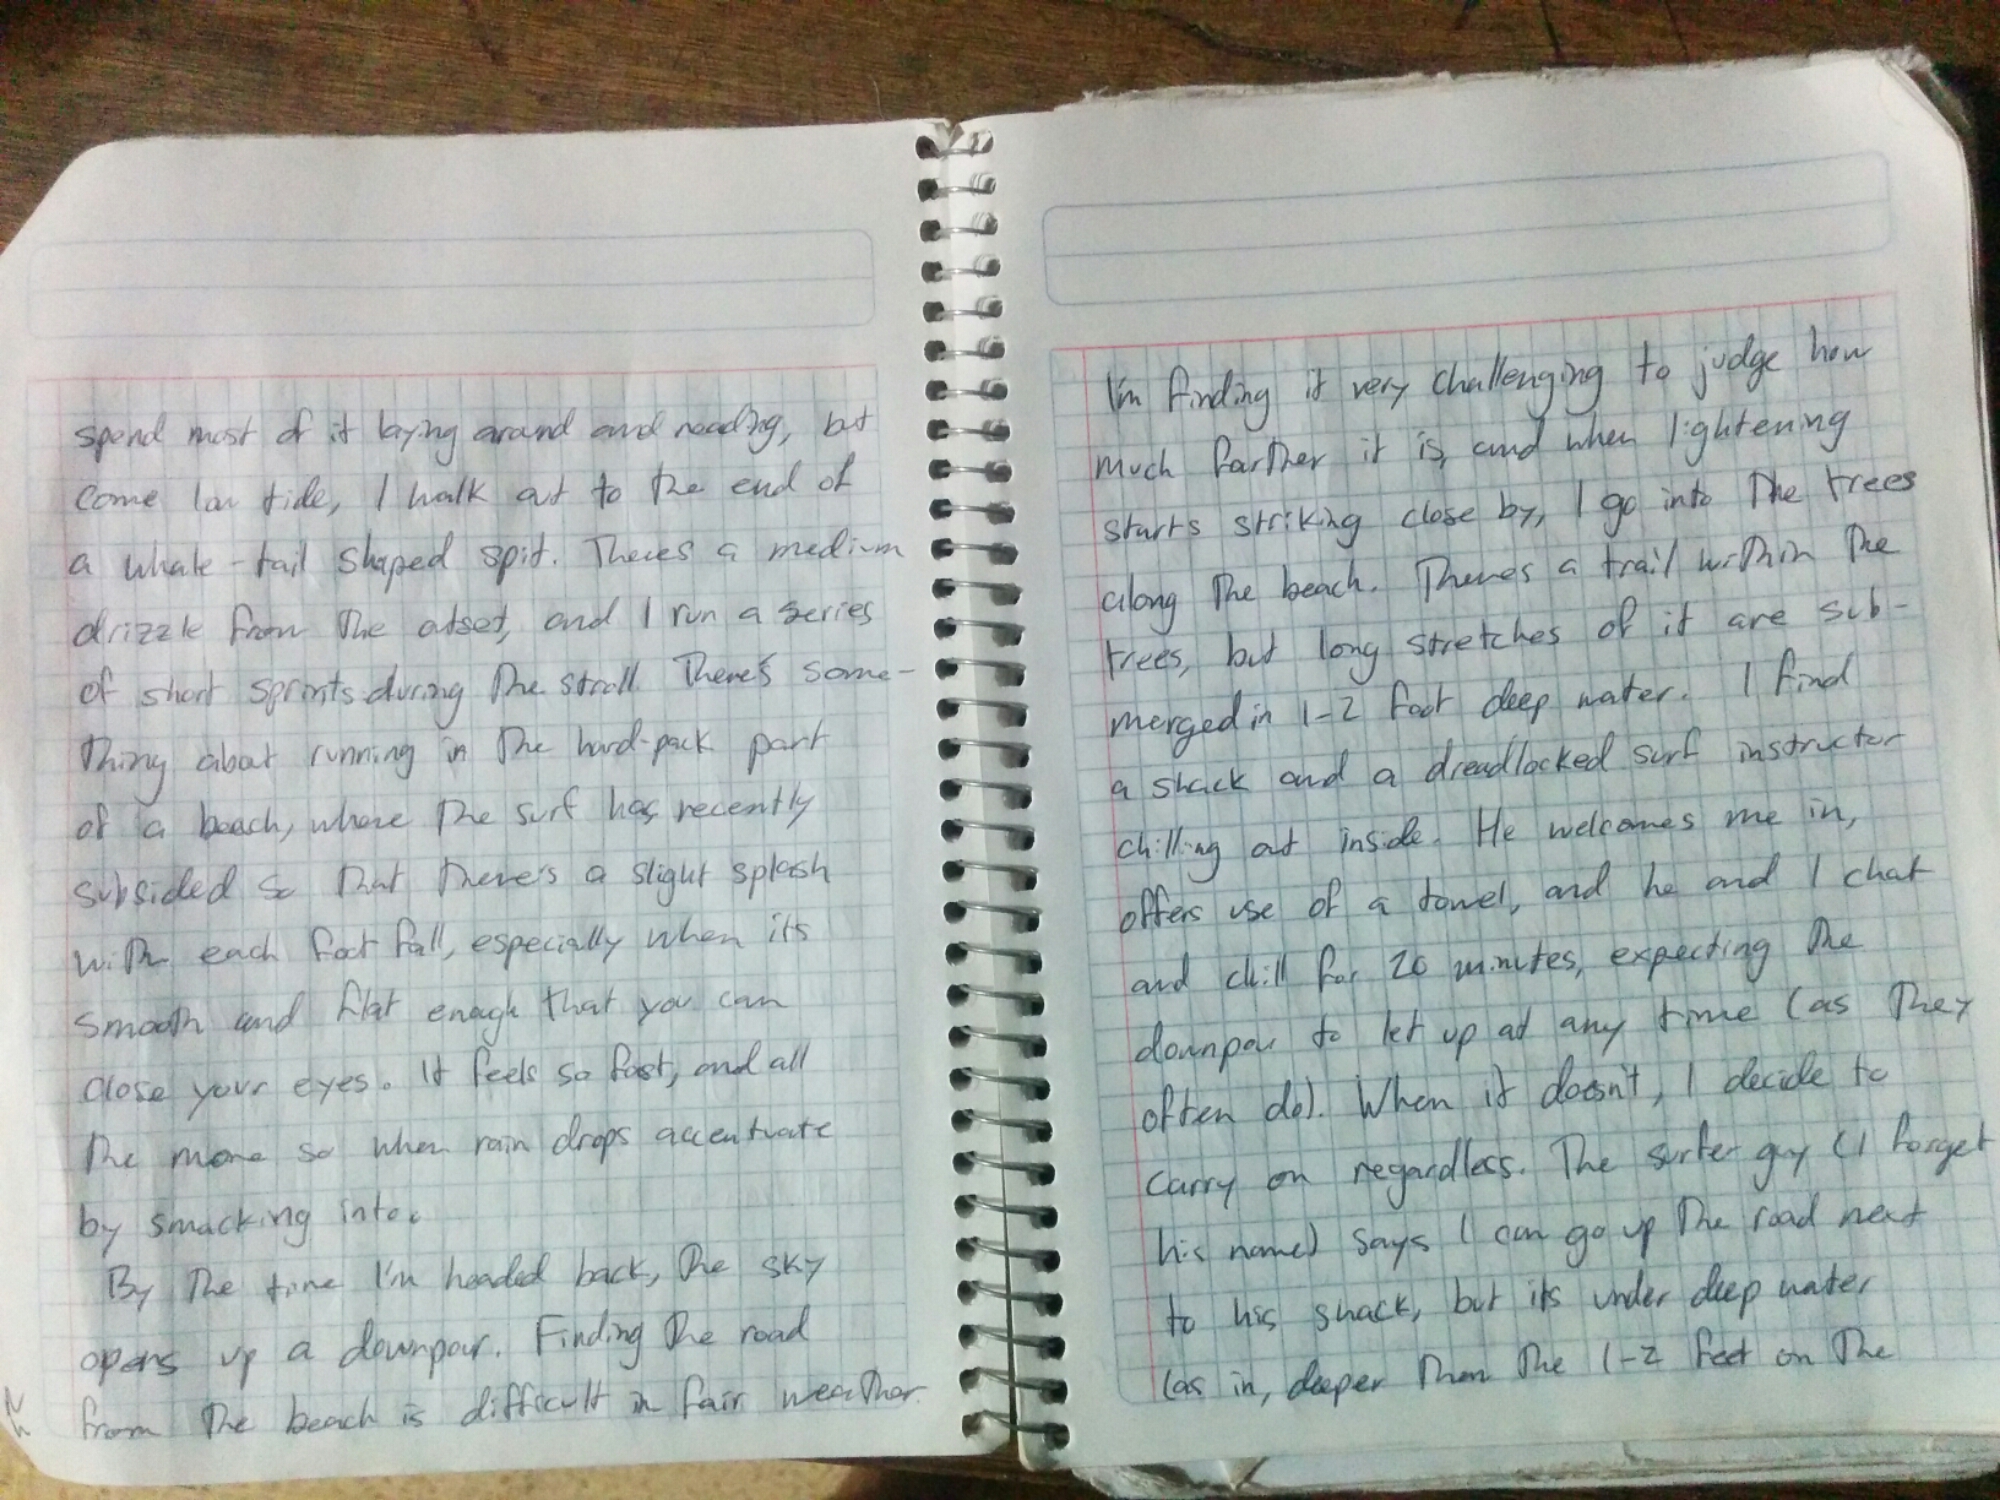 spend most of it laying around and reading, but
come low tide, I walk out to the end of
a whale-tail shaped spit. Theres a medium
drizzle from the outset, and I run a series
of short sprints during the stroll. There's some-
thing about running in the hard-pack part
of a beach, where the surf has recently
subsided so that there's a slight splash
with each foot fall, especially when its
smooth and flat enough that you can
close your eyes. It feels so fast, and all
the more so when rain drops accentuate
by smacking into.
By the time I'm headed back, the sky
opens up a downpour. Finding the road
from the beach is difficult in fair weather.
I'm finding it very challenging to judge how
much farther it is, and when lightening
starts striking close by, I go into the trees
along the beach. Theres a trail within the
trees, but long stretches of it are sub-
merged in 1-2 foot deep water. I find
a shack and a dreadlocked surf instructor
chilling out inside. He welcomes me in,
offers use of a towel, and he and I chat
and chill for 20 minutes, expecting the
downpour to let up at any time (as they
often do). When it doesn't, I decide to
carry on regardless. The surfer guy (I forget
his name) says I can go up the road next
to his shack, but its under deep water
(as in, deeper than the 1-2 feet on the